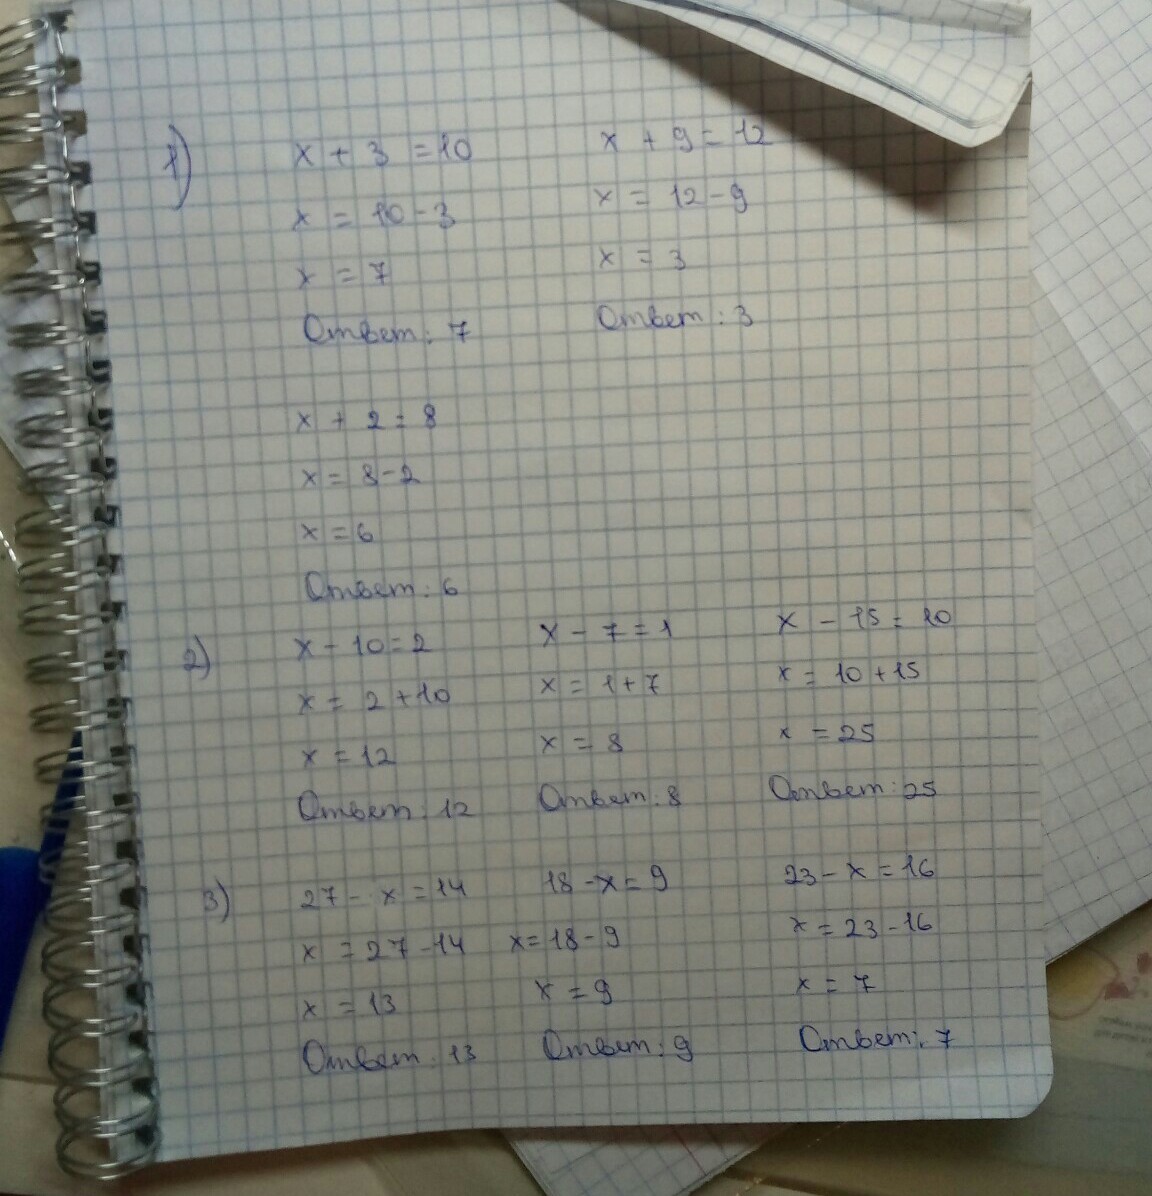 1)
x + 3 = 10
x = 10 - 3
x = 7
Ответ: 7
x + 9 = 12
x = 12 - 9
x = 3
Ответ: 3
x + 2 = 8
x = 8 - 2
x = 6
Ответ: 6
2)
x - 10 = 2
x = 2 + 10
x = 12
Ответ: 12
x - 7 = 1
x = 1 + 7
x = 8
Ответ: 8
x - 15 = 10
x = 10 + 15
x = 25
Ответ: 25
3)
27 - x = 14
x = 27 - 14
x = 13
Ответ: 13
18 - x = 9
x = 18 - 9
x = 9
Ответ: 9
23 - x = 16
x = 23 - 16
x = 7
Ответ: 7